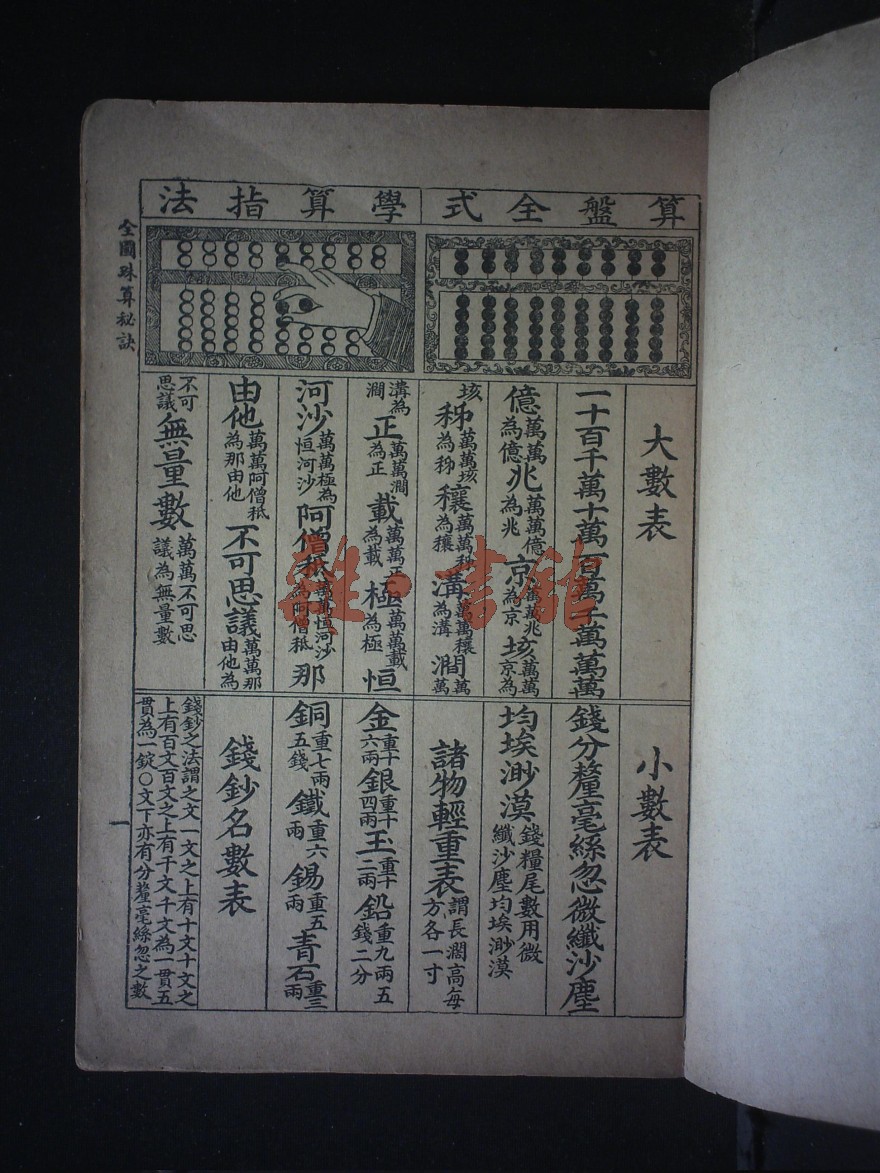 算盤全式
學算指法
全圖珠算秘訣
大數表
一十百千萬十萬百萬千萬萬萬
億萬萬為億兆萬萬億為兆京萬萬兆為京垓萬萬京為
垓秭萬萬垓為秭穰萬萬秭為穰溝萬萬穰為溝澗萬萬
溝為澗正萬萬澗為正載萬萬正為載極萬萬載為極恒
河沙萬萬極為恒河沙阿僧秪萬萬恒河沙為阿僧秪那
由他萬萬阿僧秪為那由他不可思議萬萬那由他為
不可思議無量數萬萬不可思議為無量數
小數表
錢分釐毫絲忽微纖沙塵
均埃渺漠錢糧尾數用微纖沙塵均埃渺漠
諸物輕重表謂長濶高每方各一寸
金重十六兩銀重十四兩玉重十二兩鉛重九兩五錢二分
銅重七兩五錢鐵重六兩錫重五兩青石重三兩
錢鈔名數表
錢鈔之法謂之文一文之上有十文十文之
上有百文百文之上有千文千文為一貫五
貫為一錠○文下亦有分釐毫絲忽之數
一
雜·書館